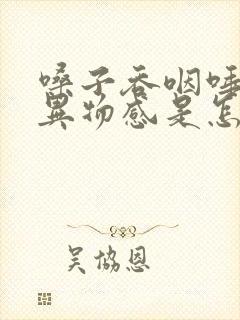 嗓子吞咽唾
异物感是怎
吴协恩